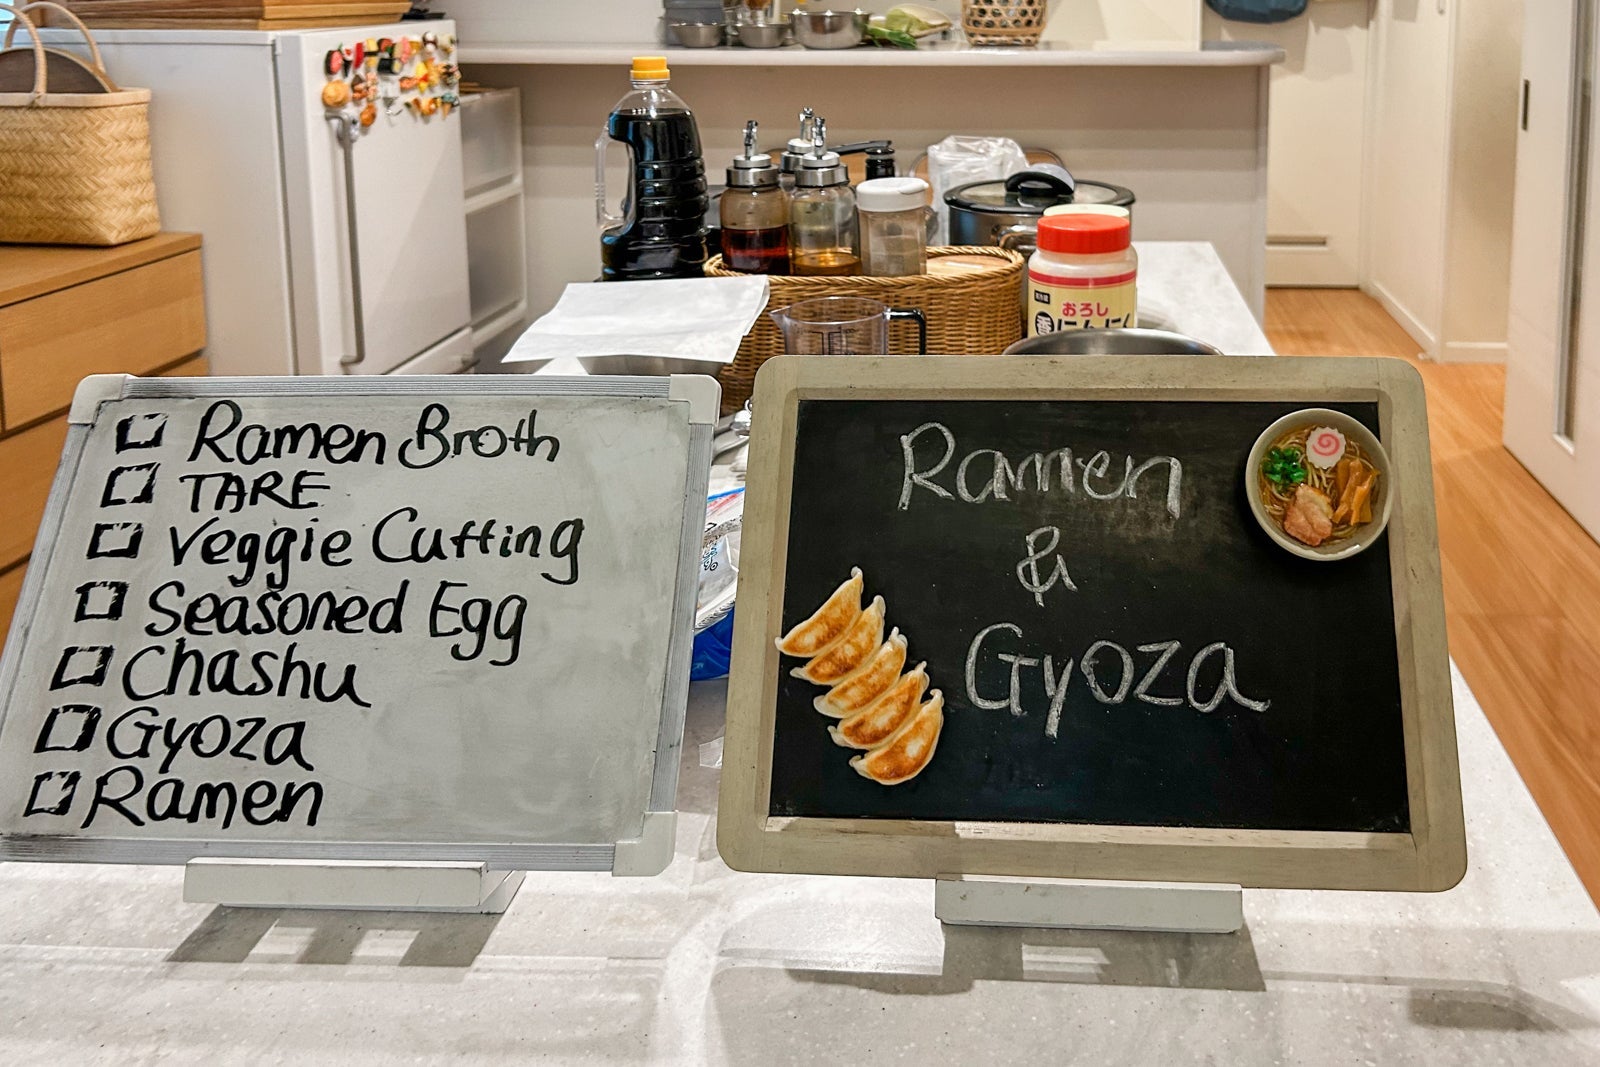 Ramen Broth
TARE
Veggie Cutting
Seasoned Egg
Chashu
Gyoza
Ramen
Ramen
&
Gyoza
おろし